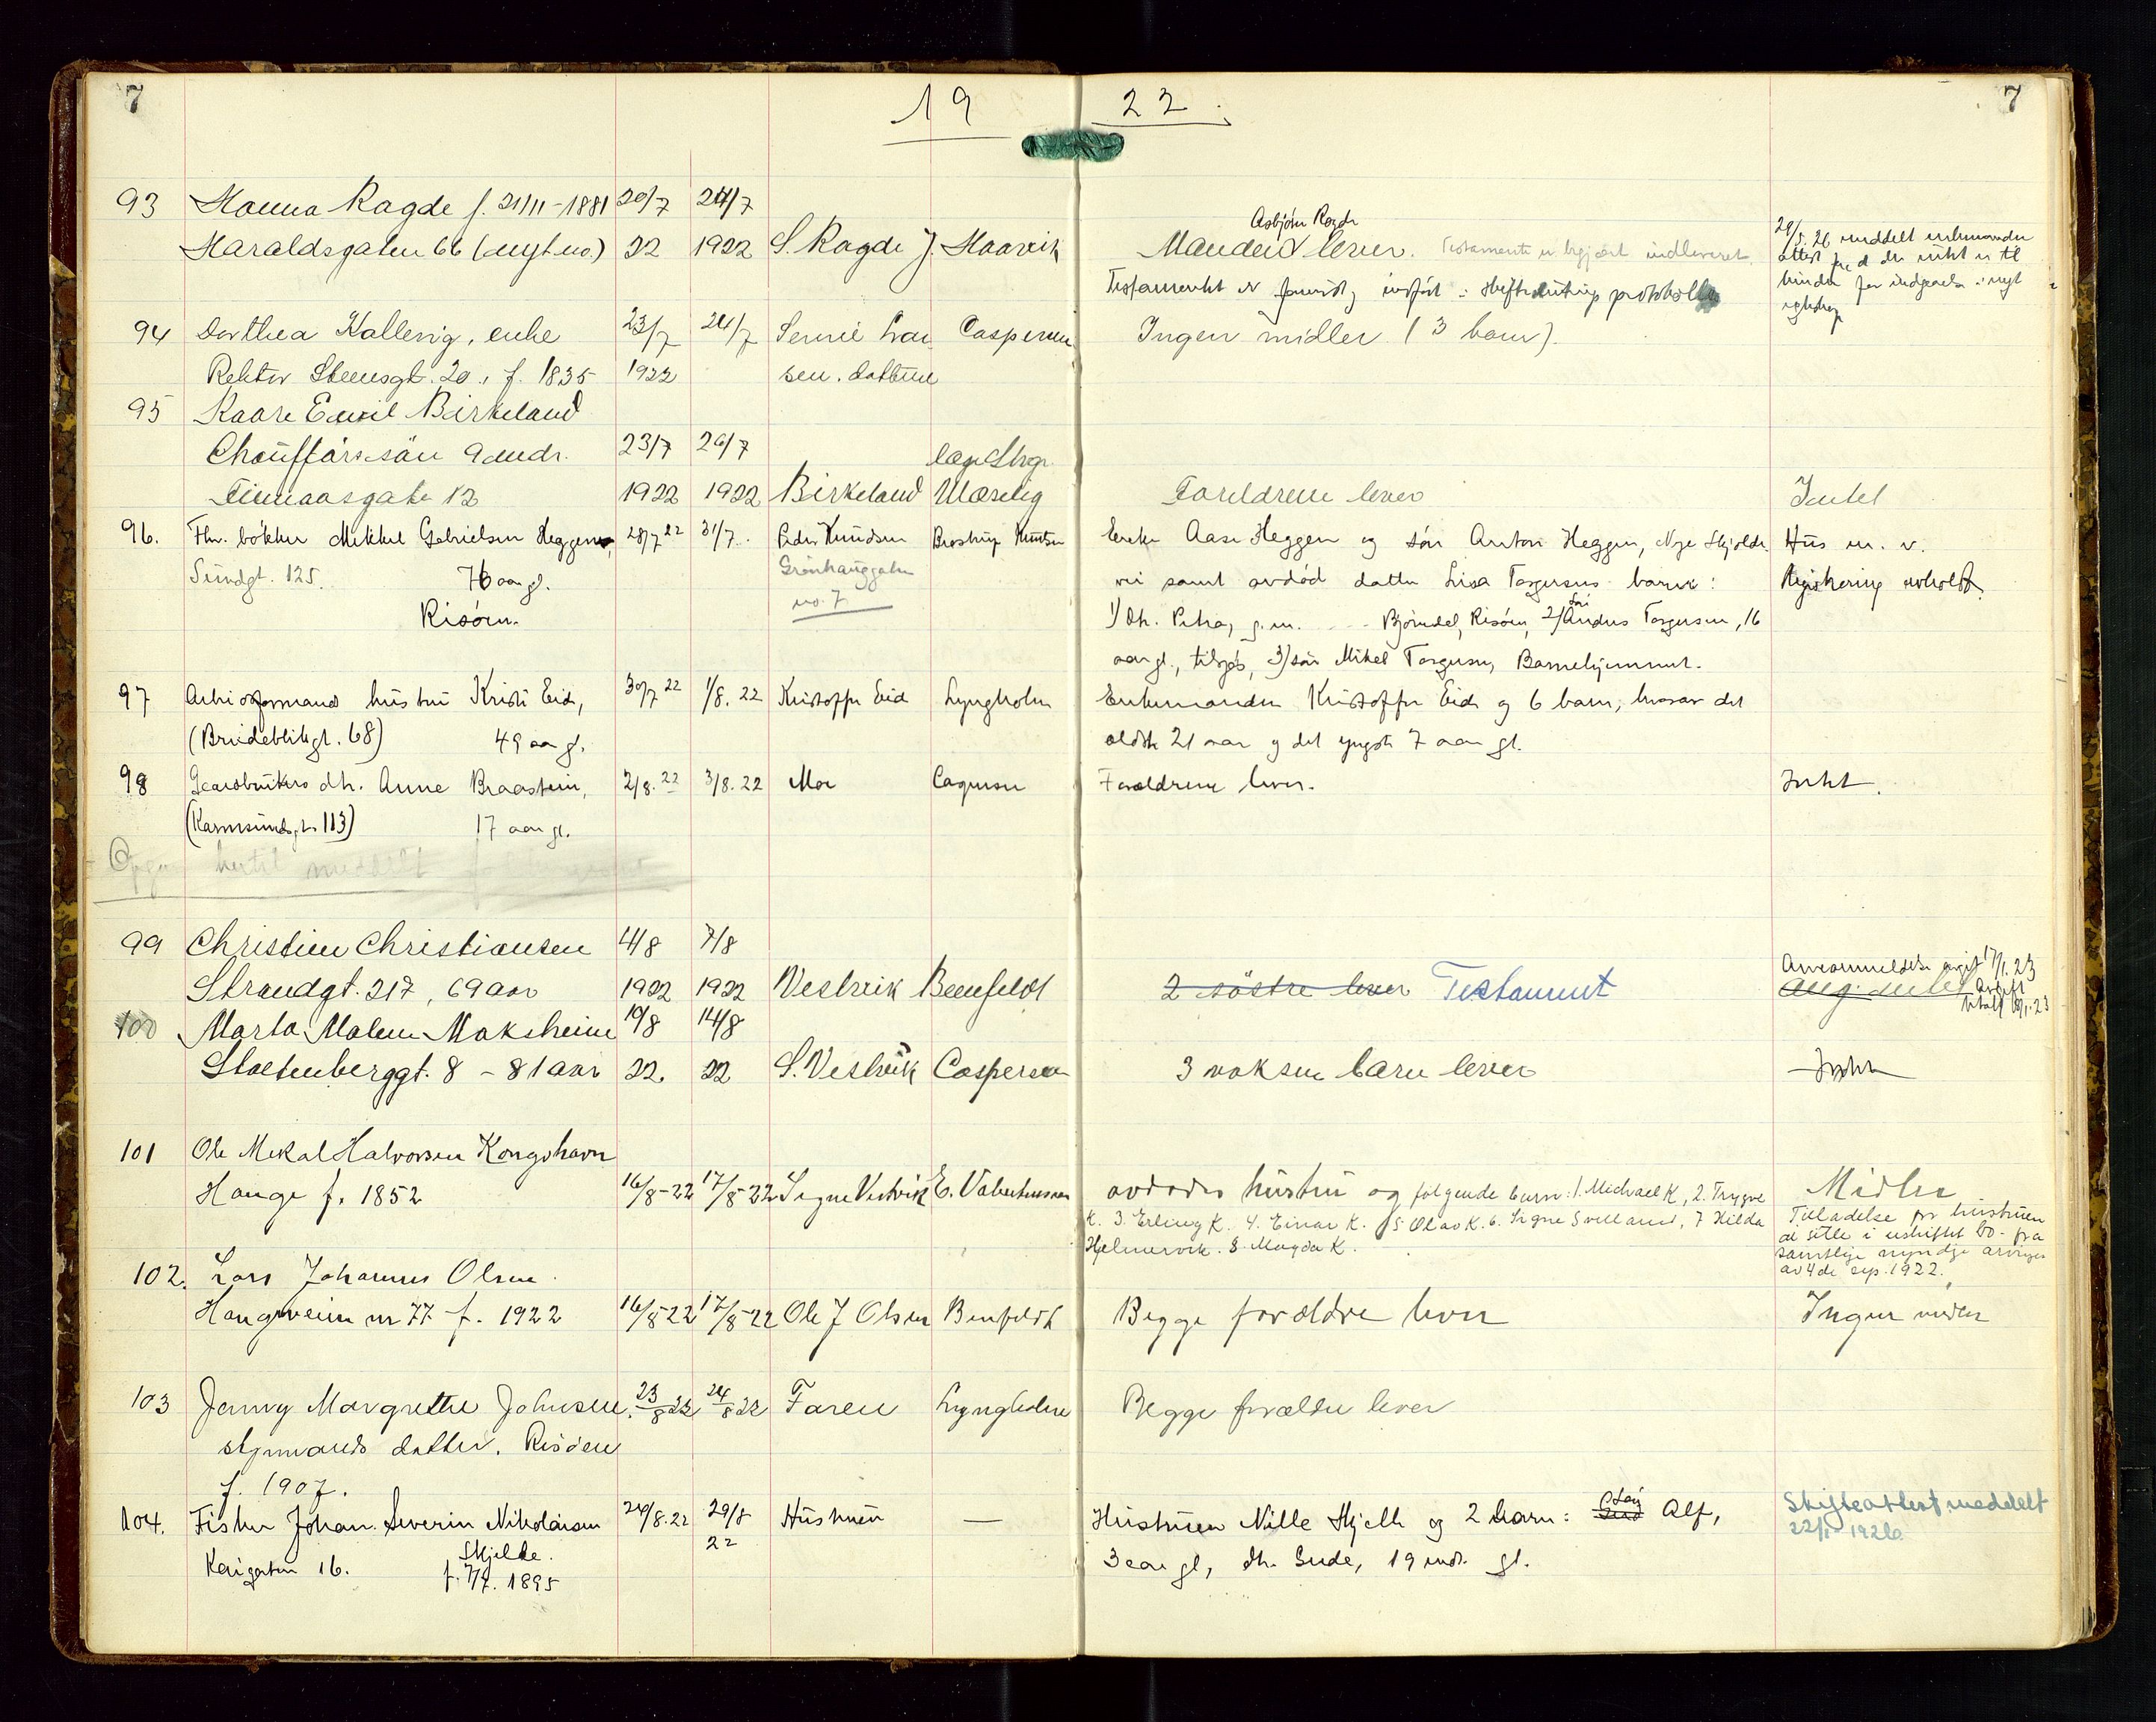 7 19 22. 7
93 Hanna Ragde f. 21/11-1881 20/7 24/7
Asbjörn Ragde
Haraldsgaten 66 (nyt no.) 22 1922 S. Ragde J. Haavik Manden lever. Testamente er begjært indleveret.
28/5. 26 meddelt enkemanden
attest for at der intet er til
hinder for indgaaelse i nyt
egteskap
Testamentet er forøvrig indført i skifteslutnings protokollen
94 Dorthea Kallevig, enke 23/7 24/7 Caspersen Ingen midler (3 barn).
Rektor Steensgt. 20, f. 1835 1922 sen. datteren
95 Kaare Emil Birkeland
Chaufförs sön 9 mdr. 23/7 26/7
1922 1922 Birkeland Foreldrene lever Intet
96. Fhv. bökker Mikkel Gabrielsen Heggen, 28/7 22 31/7. Peder Knudsen Brostrup Knutsen Enke Aase Heggen og sön Anton Heggen, Nye Skjolds- Hus m. v.
Sundgt. 125. 76 aar gl. Grönhauggaten vei samt avdöd datter Lisa Torgersens barn: Registrering avholdt.
no. 7
Risöen. 1) dtr. Petra, g.m. ---- Björndel, Risöen, 2) sön Andres Torgersen, 16
aar gl., tilsjös, 3) sön Mikel Torgersen, Barnehjemmet.
97 Arbeidsformands hustru Kristi Eid, 30/7 22 1/8. 22 Kristoffer Eid Lyngholm Enkemanden Kristoffer Eid og 6 barn, hvorav det
(Breideblikgt. 68) 49 aar gl. eldste 21 aar og det yngste 7 aar gl.
98 Gaardbrukers dtr. Anne Braastein, 2/8. 22 3/8. 22 Mor Forældrene lever. Intet.
(Karmsundsgt. 113) 17 aar gl.
Opgave hertil meddelt
99 Christine Christiansen 4/8 7/8
Strandgt. 217, 69 aar 1922 1922 Vestvik Beenfeldt 2 söstre lever Testament
Arveanmeldelse avgit 17/1. 23
Ang. intet Avgift
betalt
100 Marta Malene Maksheim 10/8 14/8
Stoltenberggt. 8 - 81 aar 22. 22 S. Vestvik Caspersen 3 voksne barn lever Intet
101 Ole Mikal Halvorsen Kongshavn
Hauge f. 1852 16/8-22 17/8-22 Signe Vestvik E. Valentinsen avdødes hustru og følgende barn: 1. Michael K, 2. Trygve Midler
K. 3. Erling K. 4. Einar K. 5 Olav K. 6. Signe Sveland, 7 Hilda Tilladelse for hustruen
Hjelmervik. 8. Magda K. at sitte i uskiftet bo fra
samtlige myndige arvinger
av 4de sep. 1922.
102. Lars Johannes Olsen
Haugeveien nr 77 - f. 1922 16/8 22 17/8-22 Ole J Olsen Benfeldt Begge forældre lever Ingen midler
103 Jenny Margrethe Johnsen. 23/8 22 24/8 22 Faren Lyngholm Begge forældre lever
styrmands datter. Risöen
f. 1907.
104. Fisker Johan Severin Nikolaisen 24/8. 22 29/8 22 Hustruen — Hustruen Nille Skjelle og 2 barn: Alf, Skifteattest meddelt
Skjelle. 22/1 1926
Kaigaten 16. f. 7/7. 1895 3 aar gl, dtr. Gude, 19 mdr. gl.